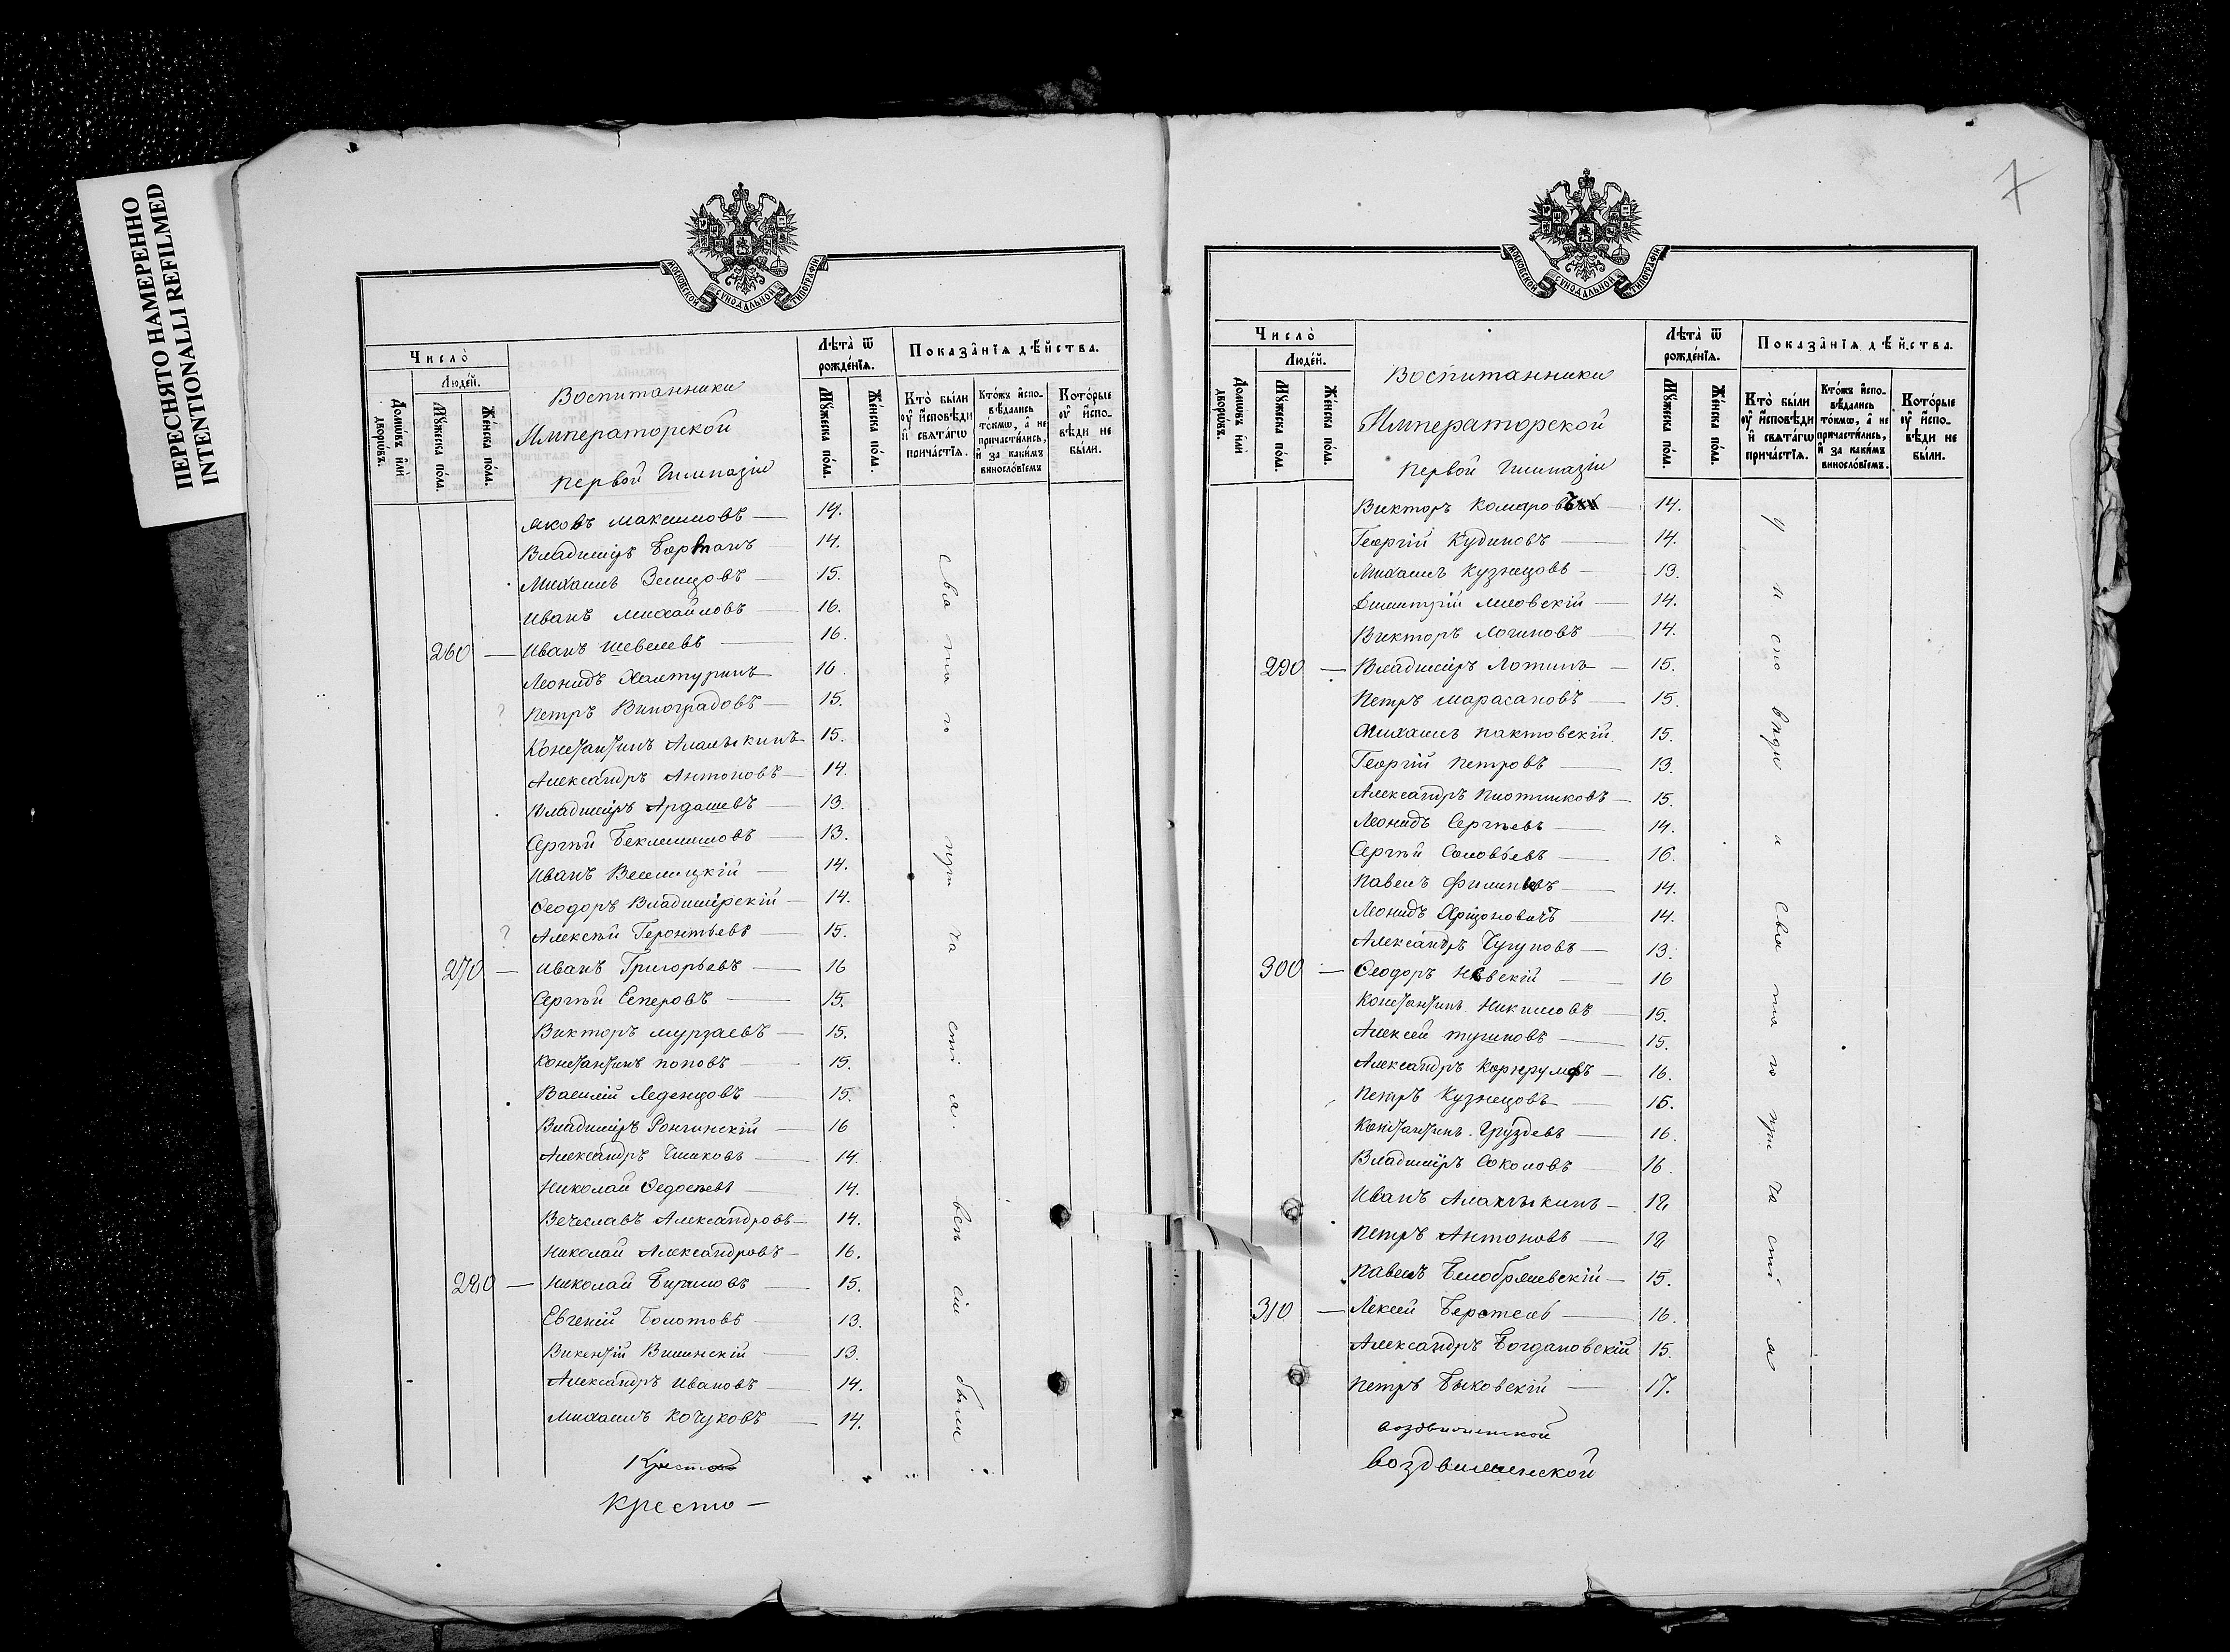 ПЕРЕСНЯТО НАМЕРЕННО
INTENTIONALLI REFILMED
МОСКОВСКОЙ СѴНОДАЛЬНОЙ ТИПОГРАФІИ
Число̀
Людей.
Домѡвъ и҆лѝ дворѡвъ.
Мꙋжеска по́ла.
Же́нска по́ла.
Воспитанники
Императорской
первой Гимназіи
Лѣта̀ ѿ рожде́нїѧ.
Мꙋжеска по́ла.
Же́нска по́ла.
Показа̂нїѧ дѣ́йства.
Кто̀ бы́ли
ᲂу҆ и҆сповѣ́ди
и҆ свѧта́гѡ
прича́стїѧ.
Кто́жъ и҆спо-
вѣ́дались
то́кмѡ, а҆ не
причасти́лись,
и҆ за каки́мъ
виносло́вїемъ
Кото́рые
ᲂу҆ и҆спо-
вѣди не
бы́ли.
Яковъ Максимовъ — 14.
Владиміръ Бортанъ 14.
Михаилъ Земцовъ — 15.
Иванъ Михайловъ — 16.
260 — Иванъ Шевелевъ — 16.
Леонидъ Халтуринъ 16.
? Петръ Виноградовъ — 15.
Константинъ Алалыкинъ 15.
Александръ Антоновъ — 14.
Владиміръ Ардашевъ — 13.
Сергѣй Беклемишовъ — 13.
Иванъ Велицкій — 14.
Ѳеодоръ Владимірскій — 14.
? Алексѣй Геронтьевъ — 15.
270 — Иванъ Григорьевъ — 16
Сергѣй Есперовъ — 15.
Викторъ Мурзаевъ — 15.
Константинъ Поповъ — 15.
Василій Леденцовъ — 15.
Владиміръ Рончинскій — 16
Александръ Чижовъ — 14.
Николай Ѳедосѣевъ — 14.
Вечеславъ Александровъ — 14.
Николай Александровъ — 16.
280 — Николай Бириловъ — 15.
Евгеній Болотовъ — 13.
Викентій Вишинскій — 13.
Александръ Ивановъ — 14.
Михаилъ Кочуковъ — 14.
свя та го при ча сті я. всѣ си были
Кресто
Кресто —
7
МОСКОВСКОЙ СѴНОДАЛЬНОЙ ТИПОГРАФІИ
Число̀
Людей.
Домѡвъ и҆лѝ дворѡвъ.
Мꙋжеска по́ла.
Же́нска по́ла.
Воспитанники
Императорской
первой Гимназіи
Лѣта̀ ѿ
рожде́нїѧ.
Мꙋжеска по́ла.
Же́нска по́ла.
Показа̂нїѧ дѣ́йства.
Кто̀ бы́ли
ᲂу҆ и҆сповѣ́ди
и҆ свѧта́гѡ
прича́стїѧ.
Кто́жъ и҆спо-
вѣ́дались
то́кмѡ, а҆ не
причасти́лись,
и҆ за каки́мъ
виносло́вїемъ.
Кото́рые
ᲂу҆ и҆спо-
вѣди не
бы́ли.
Викторъ Комаровъ — 14.
Георгій Кудиновъ — 14.
Михаилъ Кузнецовъ — 13.
Димитрій Лиловскій — 14.
Викторъ Логиновъ — 14.
290 — Владиміръ Лотинъ — 15.
Петръ Марасановъ — 15.
Михаилъ Пактовскій 15.
Георгій Петровъ — 13.
Александръ Плотниковъ — 15.
Леонидъ Сергѣевъ — 14.
Сергѣй Соловьевъ — 16.
Павелъ Филиповъ — 14.
Леонидъ Хрщоновичъ 14.
Александръ Чугуновъ — 13.
300 — Ѳеодоръ Невскій — 16
Константинъ Никишовъ — 15.
Алексей Тушновъ — 15.
Александръ Корнрумфъ — 16.
Петръ Кузнецовъ — 15.
Константинъ Груздевъ — 16.
Владиміръ Соколовъ 16.
Иванъ Алалыкинъ — 12
Петръ Антоновъ — 12
Павелъ Белобржевскій — 15.
310 — Алексей Берстель — 16.
Александръ Богдановскій 15.
Петръ Быковскій — 17.
у и спо вѣди и свя та го при ча сті я
воздвиженской
воздвиженской